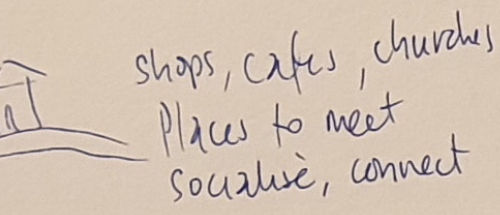 shops, cafes, churches
Places to meet
socialise, connect